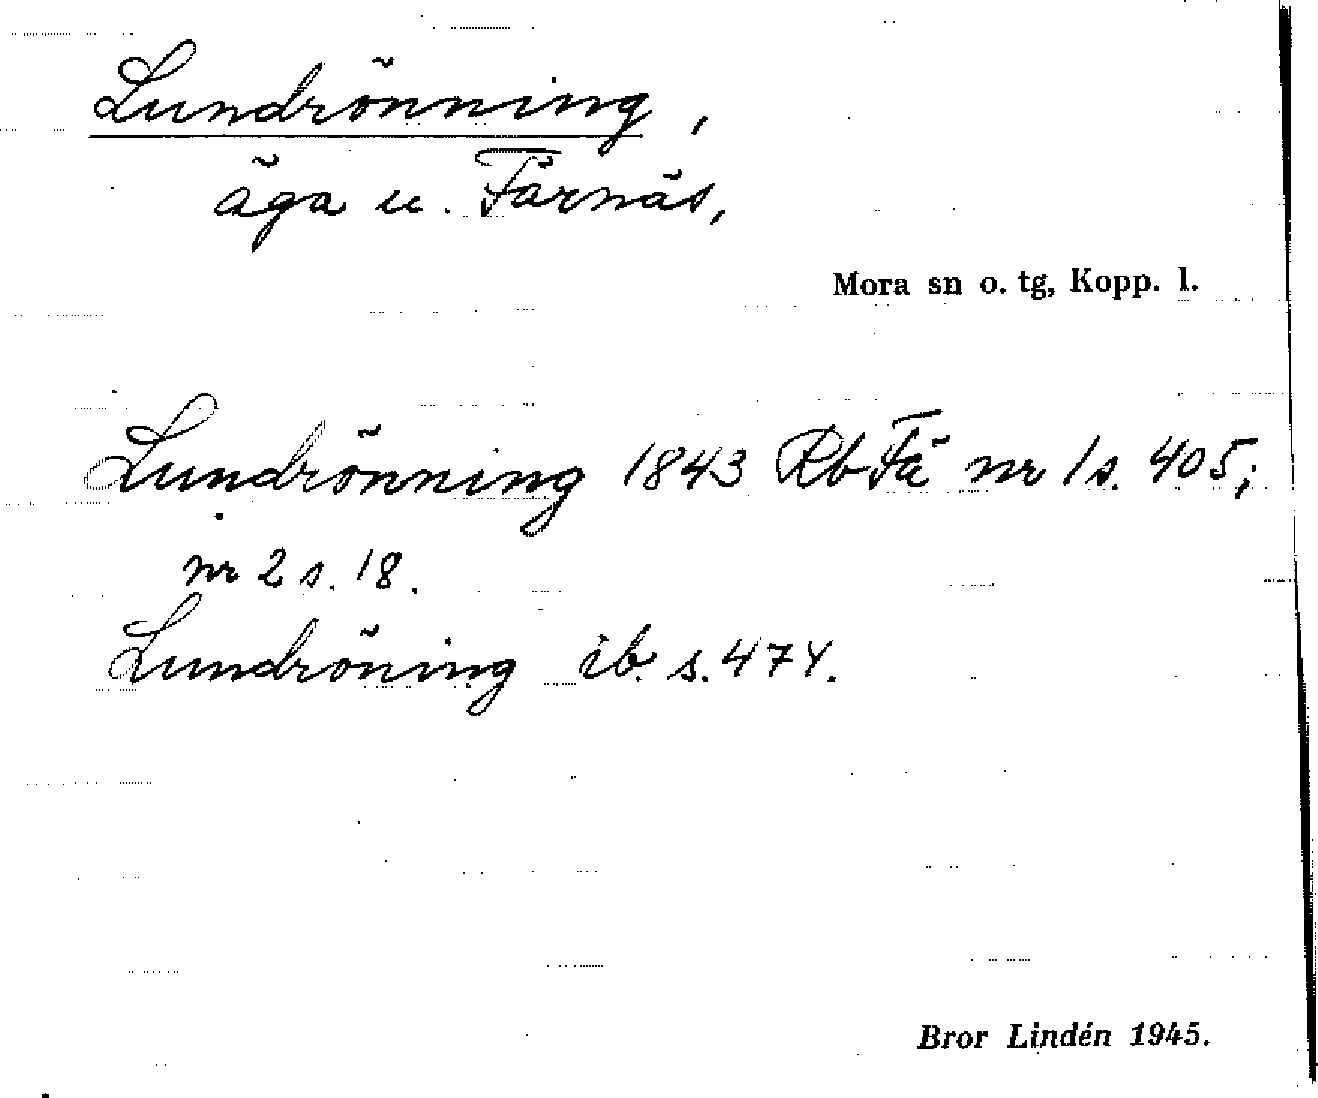 Lundrönning,
äga u. Färnäs,
Mora sn o. tg, Kopp. l.
Lundrönning 1843 Rb Fä nr 1 s. 405;
nr 2 s. 18.
Lundröning ib. s. 474.
Bror Lindén 1945.